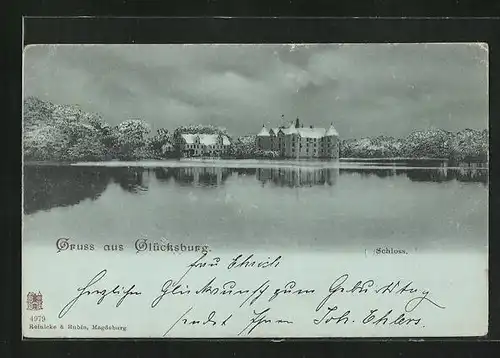 Gruss aus Glücksburg.
Schloss.
Frau Ehrich
Herzlichen Glückwunsch zum Geburtstag
sendet Ihnen Joh. Ehlers.
4979
Reinicke & Rubin, Magdeburg